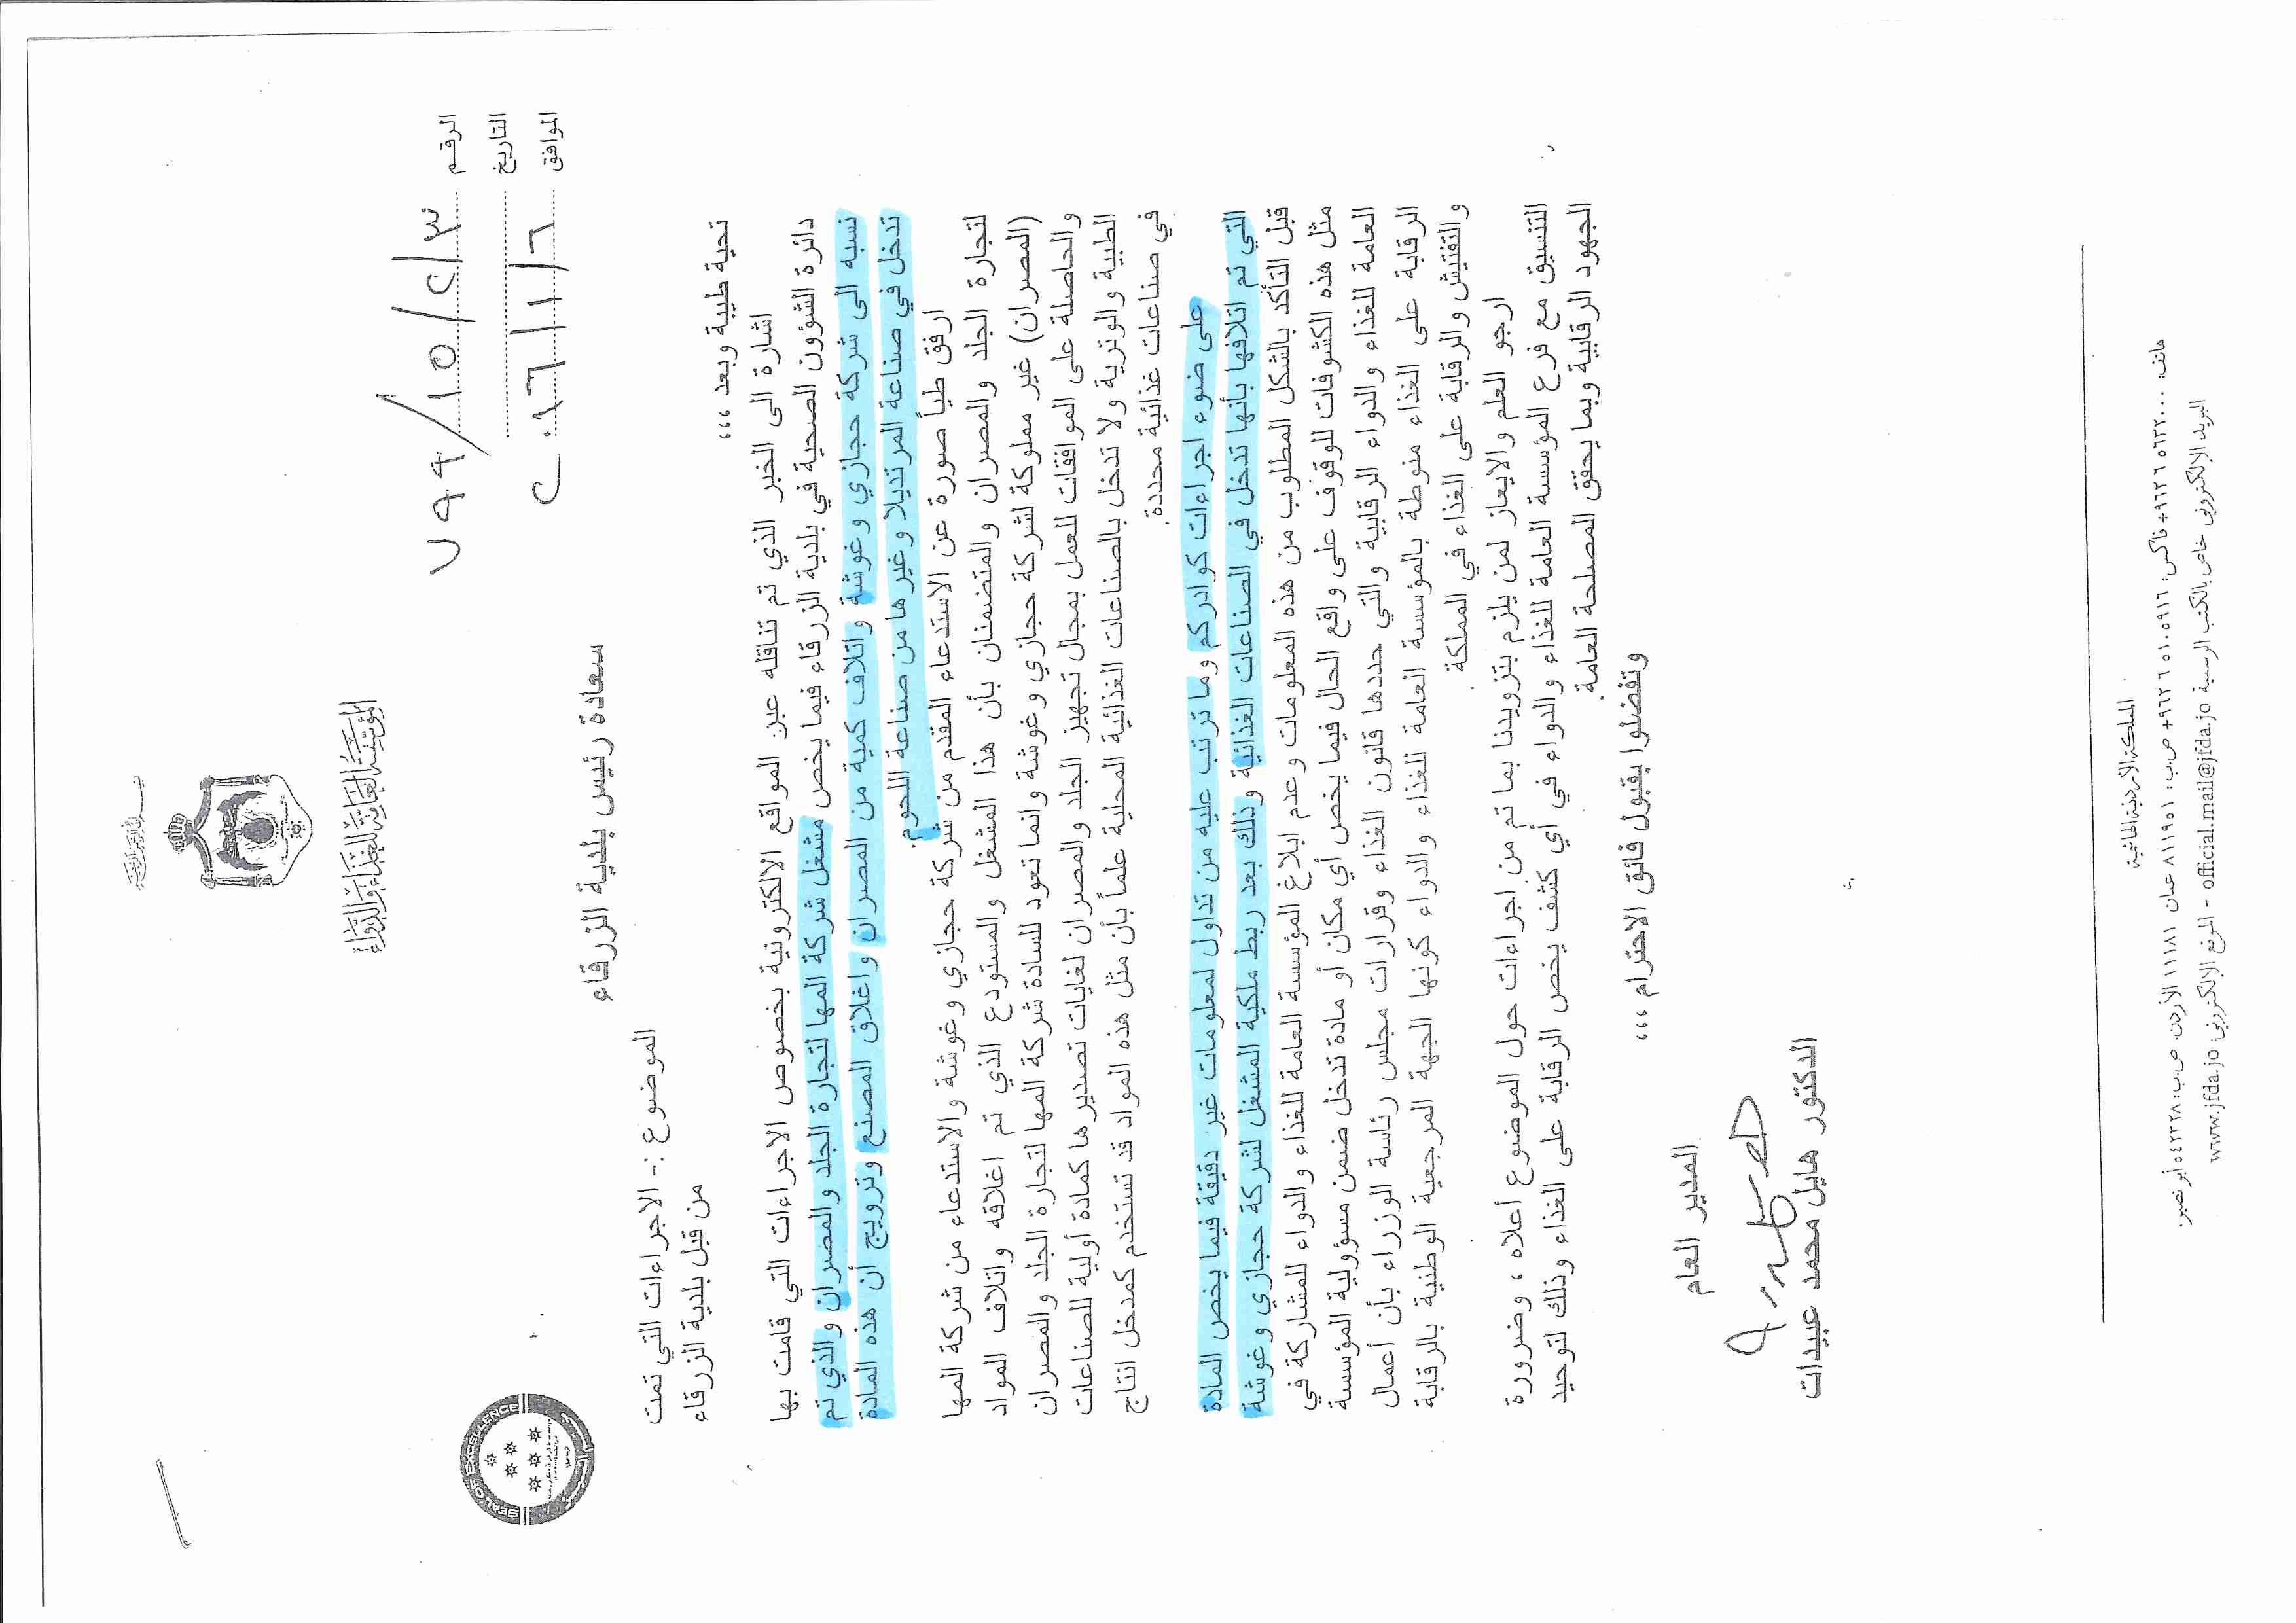 بسم الله الرحمن الرحيم
المؤسسة العامة للغذاء والدواء
SEAL OF EXCELLENCE
الرقم ٣/٢/١٥/٧٩٩
التاريخ
الموافق ٢٠١٦/١/٦
سعادة رئيس بلدية الزرقاء
الموضوع :- الاجراءات التي تمت
من قبل بلدية الزرقاء
تحية طيبة وبعد ،،،
اشارة الى الخبر الذي تم تناقله عبر المواقع الالكترونية بخصوص الاجراءات التي قامت بها
دائرة الشؤون الصحية في بلدية الزرقاء فيما يخص مشغل شركة المها لتجارة الجلد والمصران والذي تم
نسبه الى شركة حجازي وغوشة واتلاف كمية من المصران واغلاق المصنع وترويج أن هذه المادة
تدخل في صناعة المرتديلا وغيرها من صناعة اللحوم.
ارفق طياً صورة عن الاستدعاء المقدم من شركة حجازي وغوشة والاستدعاء من شركة المها
لتجارة الجلد والمصران والمتضمنان بأن هذا المشغل والمستودع الذي تم اغلاقه واتلاف المواد
(المصران) غير مملوكة لشركة حجازي وغوشة وانما تعود للسادة شركة المها لتجارة الجلد والمصران
والحاصلة على الموافقات للعمل بمجال تجهيز الجلد والمصران لغايات تصديرها كمادة أولية للصناعات
الطبية والوترية ولا تدخل بالصناعات الغذائية المحلية علماً بأن مثل هذه المواد قد تستخدم كمدخل انتاج
في صناعات غذائية محددة.
على ضوء اجراءات كوادركم وما ترتب عليه من تداول لمعلومات غير دقيقة فيما يخص المادة
التي تم اتلافها بأنها تدخل في الصناعات الغذائية وذلك بعد ربط ملكية المشغل لشركة حجازي وغوشة
قبل التأكد بالشكل المطلوب من هذه المعلومات وعدم ابلاغ المؤسسة العامة للغذاء والدواء للمشاركة في
مثل هذه الكشوفات للوقوف على واقع الحال فيما يخص أي مكان أو مادة تدخل ضمن مسؤولية المؤسسة
العامة للغذاء والدواء الرقابية والتي حددها قانون الغذاء وقرارات مجلس رئاسة الوزراء بأن أعمال
الرقابة على الغذاء منوطة بالمؤسسة العامة للغذاء والدواء كونها الجهة المرجعية الوطنية بالرقابة
والتفتيش والرقابة على الغذاء في المملكة.
ارجو العلم والايعاز لمن يلزم بتزويدنا بما تم من اجراءات حول الموضوع أعلاه ، وضرورة
التنسيق مع فرع المؤسسة العامة للغذاء والدواء في أي كشف يخص الرقابة على الغذاء وذلك لتوحيد
الجهود الرقابية وبما يحقق المصلحة العامة.
وتفضلوا بقبول فائق الاحترام ،،،
المدير العام
الدكتور هايل محمد عبيدات
المملكة الأردنية الهاشمية
هاتف: ٥٦٣٢٠٠٠ ٦ ٩٦٢+ فاكس: ٥١٠٥٩١٦ ٦ ٩٦٢+ ص.ب: ٨١١٩٥١ عمان ١١١٨١ الأردن. ص.ب: ٥٤٢٣٣٨ أبو نصير.
البريد الإلكتروني خاص بالكتب الرسمية official.mail@jfda.jo - الموقع الإلكتروني: www.jfda.jo